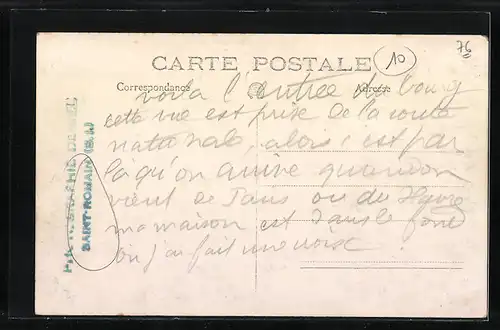 76
CARTE POSTALE
10
Correspondance
Adresse
voila l'entrée du bourg
cette vue est prise de la route
nationale, alors c'est par
là qu'on arrive quand on
vient de Paris ou du Havre
ma maison est dans le fond
où j'ai fait une
SAINT-ROMAIN